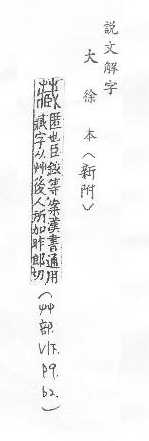 說文解字
大徐本(新附)
藏匿也臣鉉等案漢書通用
臧字从艸後人所加昨郎切
(艸部. V1下. P9. b2.)